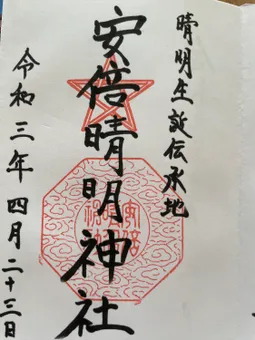 晴明生誕伝承地
安倍晴明神社
令和三年四月二十三日